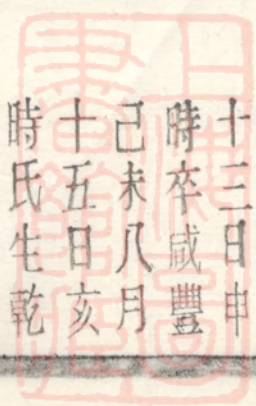 十三日申
時卒咸豐
己未八月
十五日亥
時氏生乾